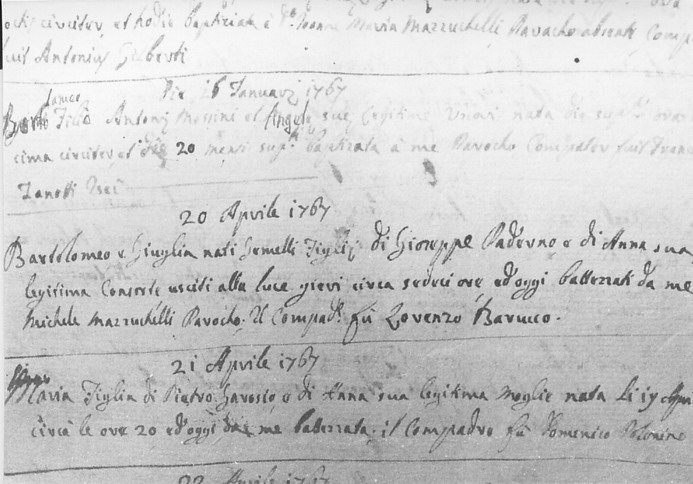 circiter, et hodie baptizata è D. Joanne Maria Mazzuchelli Parocho absente
fuit Antonius Gilberti
Die 16 Januarj 1767
Filia Antonij Messini et Angele sue legitime Uxori nata die sup.
cima circiter et die 20 mensi sup. baptizata à me Parocho Compater fuit
Zanotti
20 Aprile 1767
Bartolomeo e Giuglia nati Jemelli Figlij di Gioseppe Paderno e di Anna sua
legitima Consorte usciti alla luce gievi circa sedeci ore ed'oggi battezzati da me
Michele Mazzuchelli Parocho. Il Compad. fù Lorenzo Barucco.
21 Aprile 1767
Maria Figlia di Pietro e di Anna sua legitima Moglie nata li 19
circa le ore 20 ed'oggi da me battezzata. il Compadre fù Domenico
22 Aprile 1767